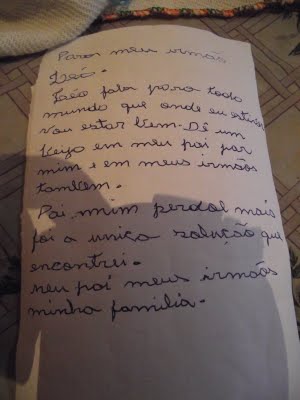 Para meu irmão
Leó.
Leó fala para todo
mundo que onde eu estiver
vou estar bem. Dê um
beijo em meu pai por
mim e em meus irmãos
tambem.
Pai mim perdoi mais
foi a unica solução que
encontrei.
meu pai meus irmãos
minha familia.